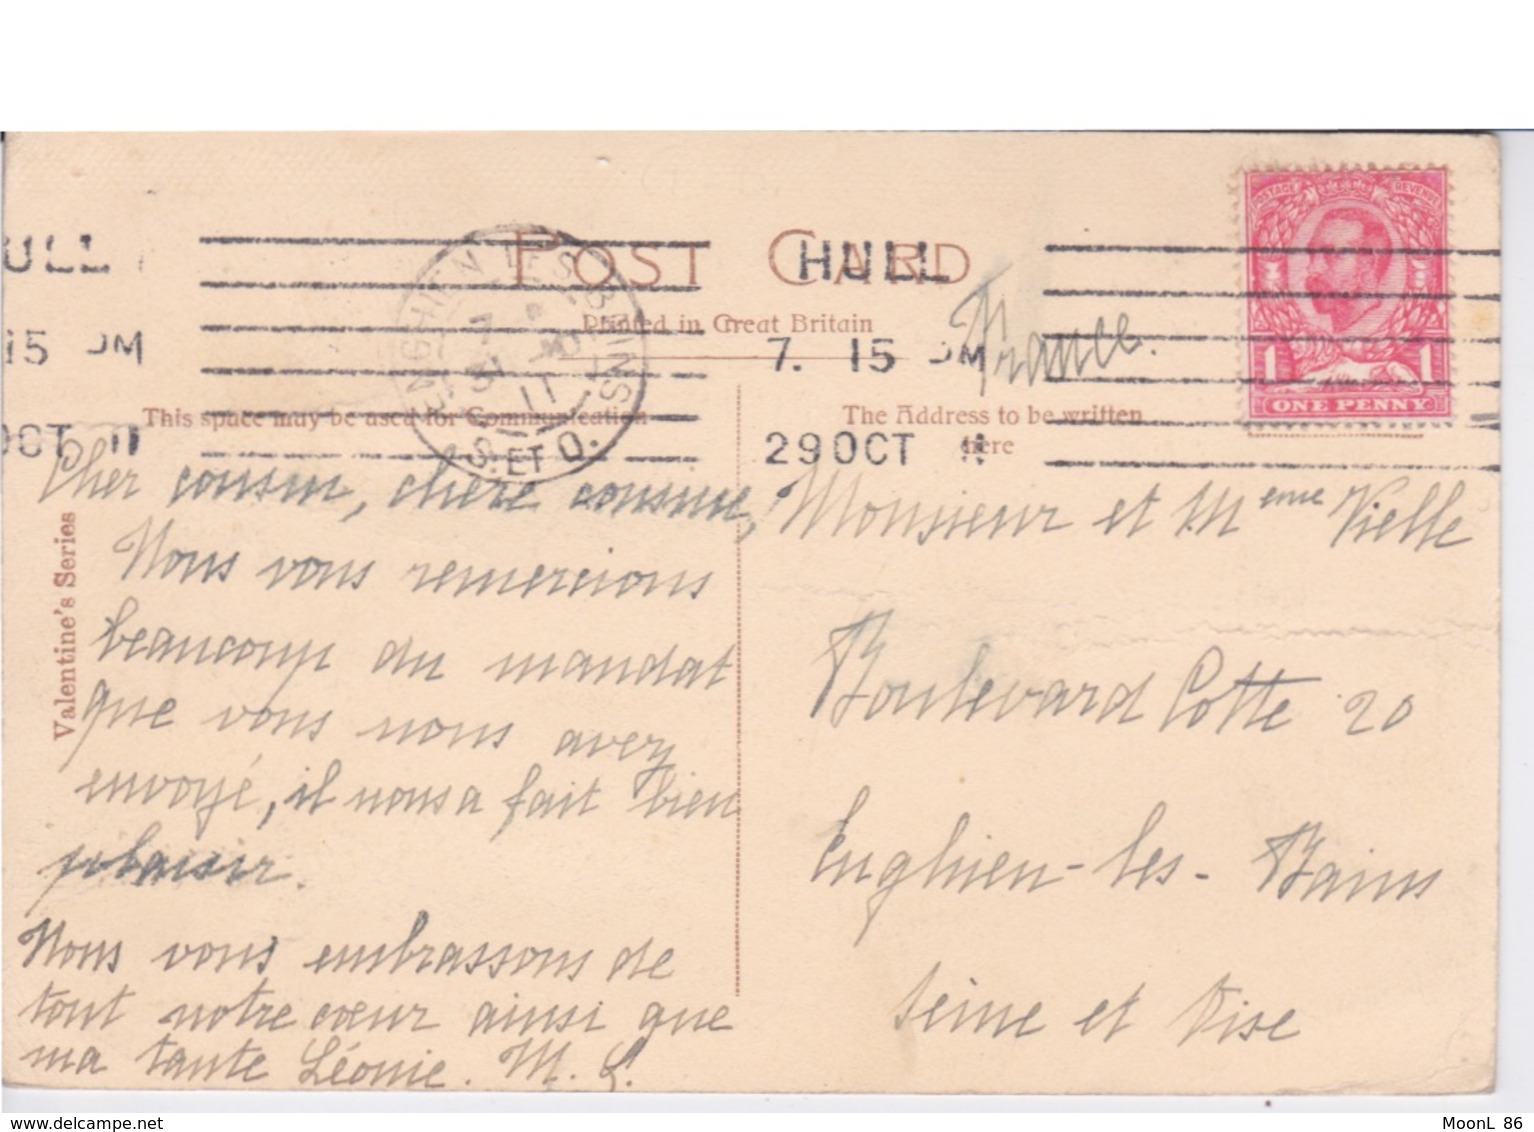 POST CARD
Printed in Great Britain
HULL
7. 15 PM
29 OCT 11
ULL
15 PM
OCT 11
ENGHIEN LES BAINS
7
31
11
S. ET O.
POSTAGE REVENUE
1 1
ONE PENNY
France.
This space may be used for Communication
The Address to be written
here
Valentine's Series
Cher cousin, chère cousine,
Nous vous remercions
beaucoup du mandat
que vous nous avez
envoyé, il nous a fait bien
plaisir.
Nous vous embrassons de
tout notre cœur ainsi que
ma tante Léonie. M. L.
Monsieur et Meme Vielle
Boulevard Cotte 20
Enghien-les-Bains
Seine et Oise
MoonL 86